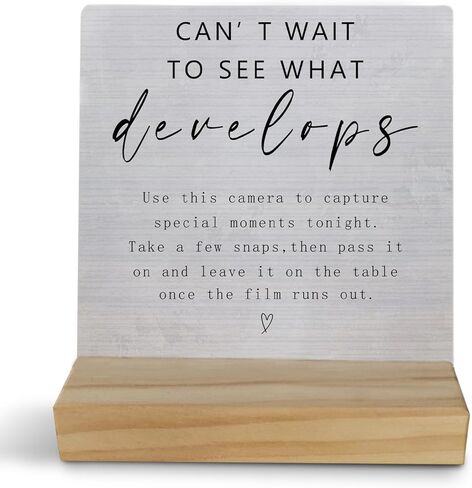 CAN' T WAIT
TO SEE WHAT
develops
Use this camera to capture
special moments tonight.
Take a few snaps,then pass it
on and leave it on the table
once the film runs out.